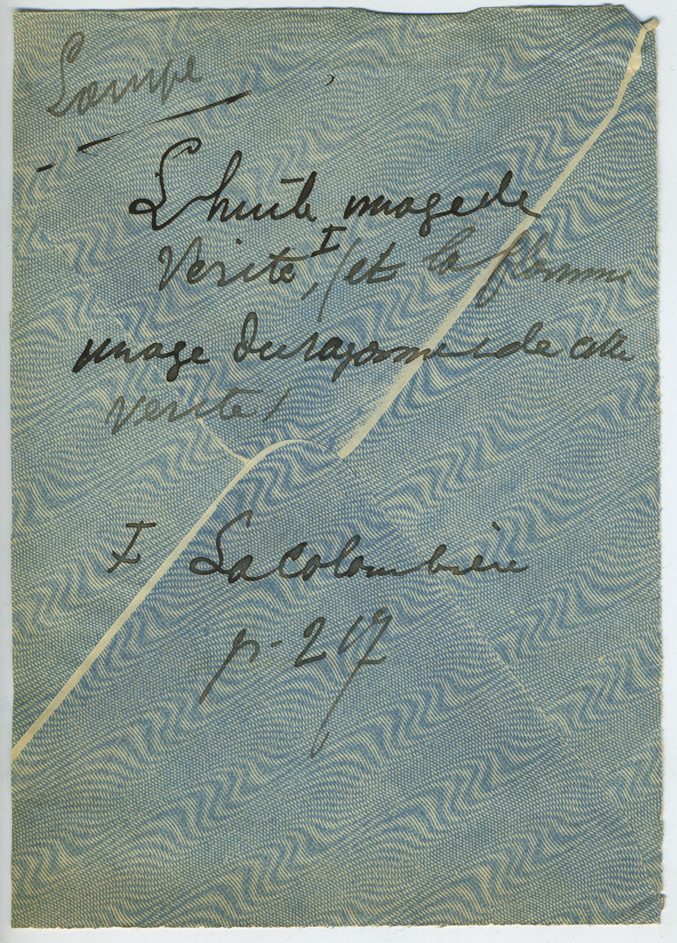 Lampe
L'huile image de
Vérité, I (et la flamme
image du rayonnement de cette
vérité)
I La Colombière
p. 217